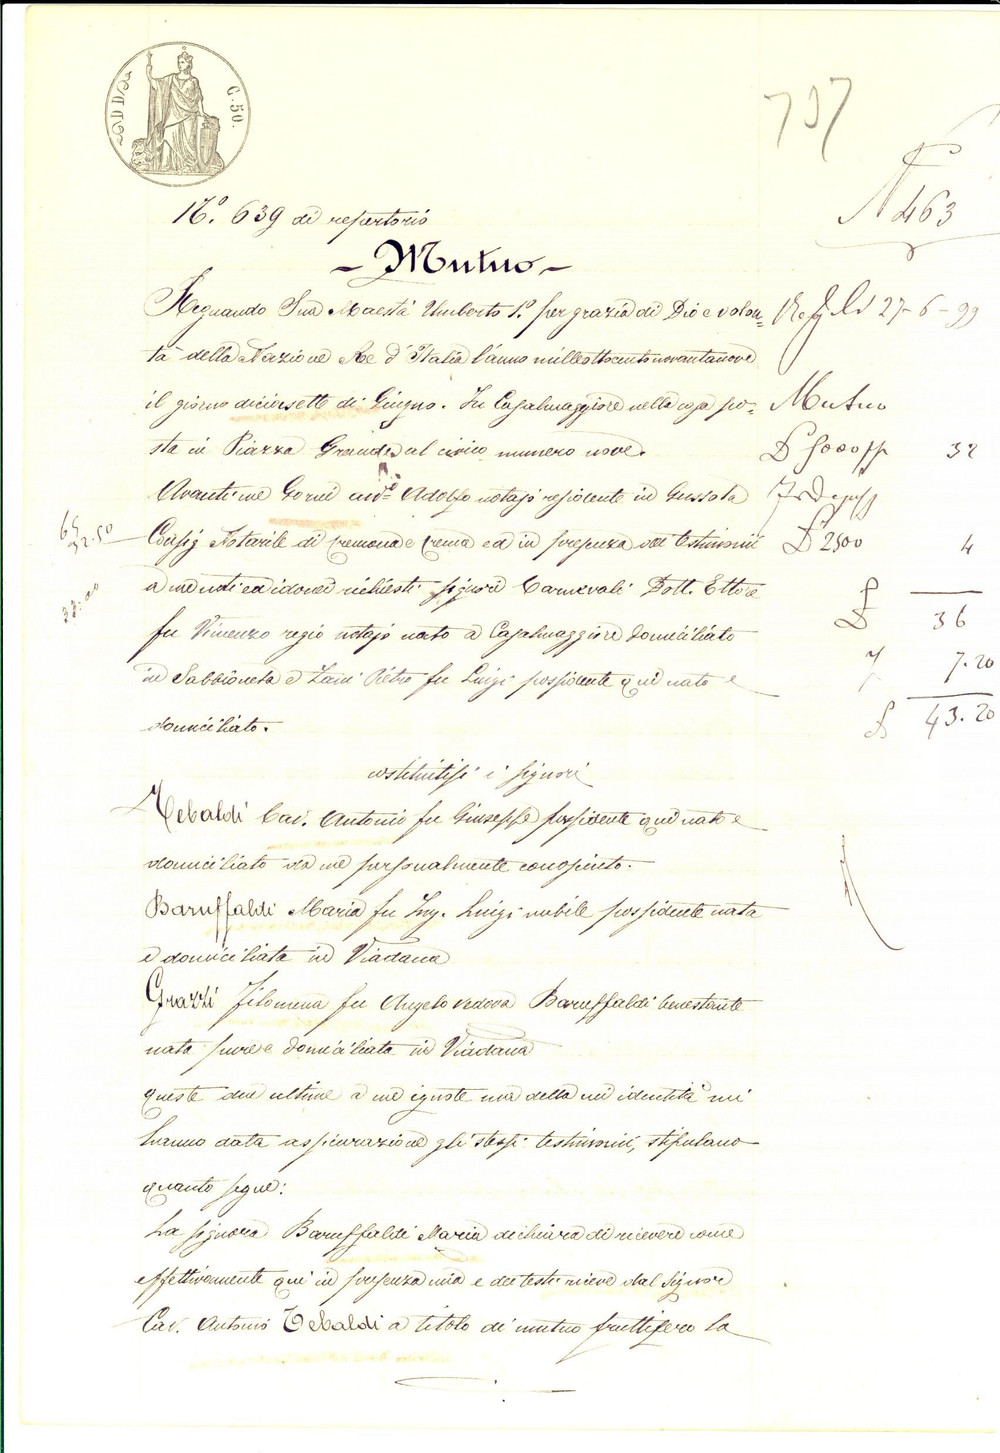 C. 50.
737
N 463
N.° 639 di repertorio
Mutuo
Regnando Sua Maestà Umberto 1.° per grazia di Dio e volon-
tà della Nazione Re d'Italia l'anno milleottocentonovantanove
il giorno diciasette di Giugno. In Casalmaggiore nella casa po-
sta in Piazza Grande al civico numero nove.
Avanti me Gorni Adolfo notajo residente in Gussola
Consig Notarile di Cremona e Crema ed in presenza dei testimonii
a me noti ed idonei richiesti signori Carnevali Dott. Ettore
fu Vincenzo regio notajo nato a Casalmaggiore domiciliato
in Sabbioneta e Zani Pietro fu Luigi possidente quì nato e
domiciliato.
costituitisi i signori
Tebaldi Cav. Antonio fu Giuseppe possidente quì nato e
domiciliato da me personalmente conosciuto.
Baruffaldi Maria fu Ing. Luigi nubile possidente nata
e domiciliata in Viadana
Grazzi Filomena fu Angelo vedova Baruffaldi benestante
nata pure e domiciliata in Viadana
queste due ultime a me ignote ma della cui identità mi
hanno data assicurazione gli stessi testimonii, stipulano
quanto segue:
La signora Baruffaldi Maria dichiara di ricevere come
effettivamente quì in presenza mia e dei testi riceve dal Signor
Cav. Antonio Tebaldi a titolo di mutuo fruttifero la
27-6-99
Mutuo
5000 32
2500 4
36
7.20
43.20
65
32.50